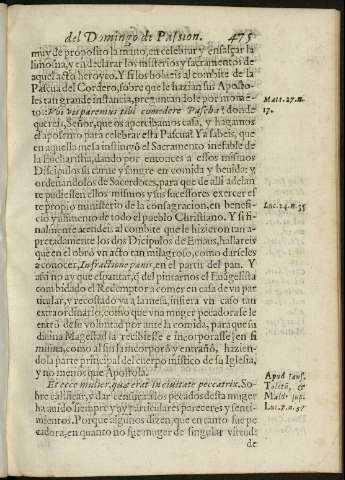 del Domingo de Passion. 475
muy de proposito la mano, en celebrar y ensalçar la
limosna, y en declarar los misterios y sacramentos de
aquel acto heroyco. Y si los bolueis al combite de la
Pascua del Cordero, sobre que le hazian sus Aposto-
les tan grande instancia, preguntandole por mome-
to: Vbi vis paremus tibi comedere Pascha? donde
quereis, Señor, que os apercibamos casa, y hagamos
el aposento para celebrar esta Pascua? Ya sabeis, que
en aquella mesa instituyò el Sacramento inefable de
la Eucharistia, dando por entonces a ellos mismos
Discipulos su carne y sangre en comida y beuida: y
ordenandolos de Sacerdotes, para que de alli adelan
te pudiessen ellos mismos y sus sucessores exercer el
te propio ministerio de la consagracion, en benefi-
cio y alimento de todo el pueblo Christiano. Y si fi-
nalmente atendeis al combite que le hizieron tan a-
pretadamente los dos Dicipulos de Emaus, hallareis
que en el obrò vn acto tan milagroso, como darseles
a conocer, In fractione panis, en el partir del pan. Y
assi no ay que espantar, si del pintarnos el Euãgelista
combidado el Redemptor a comer en casa de vn par
ticular, y recostado ya a la mesa, infiera vn caso tan
extraordinario, como que vna muger pecadora se le
entrò de su voluntad por ante la comida, para que su
diuina Magestad la recibiesse e incorporasse en si
mismo, como al fin la incorporò y entrañò, hazien-
dola parte principal del cuerpo mistico de su Iglesia,
y no menos que Apostola.
Et ecce mulier, quæ erat in ciuitate peccatrix. So-
bre calificar, y dar censura a los pecados desta muger
ha auido siempre y ay particulares pareceres y senti-
mientos. Porque algunos dizen, que en tanto fue pe
cadora, en quanto no fue muger de singular virtud:
de
Matt. 27. n.
17.
Luc. 24. n. 35
Apud sanc.
Toletũ, &
Mald. sup.
Luc. 7. n. 37